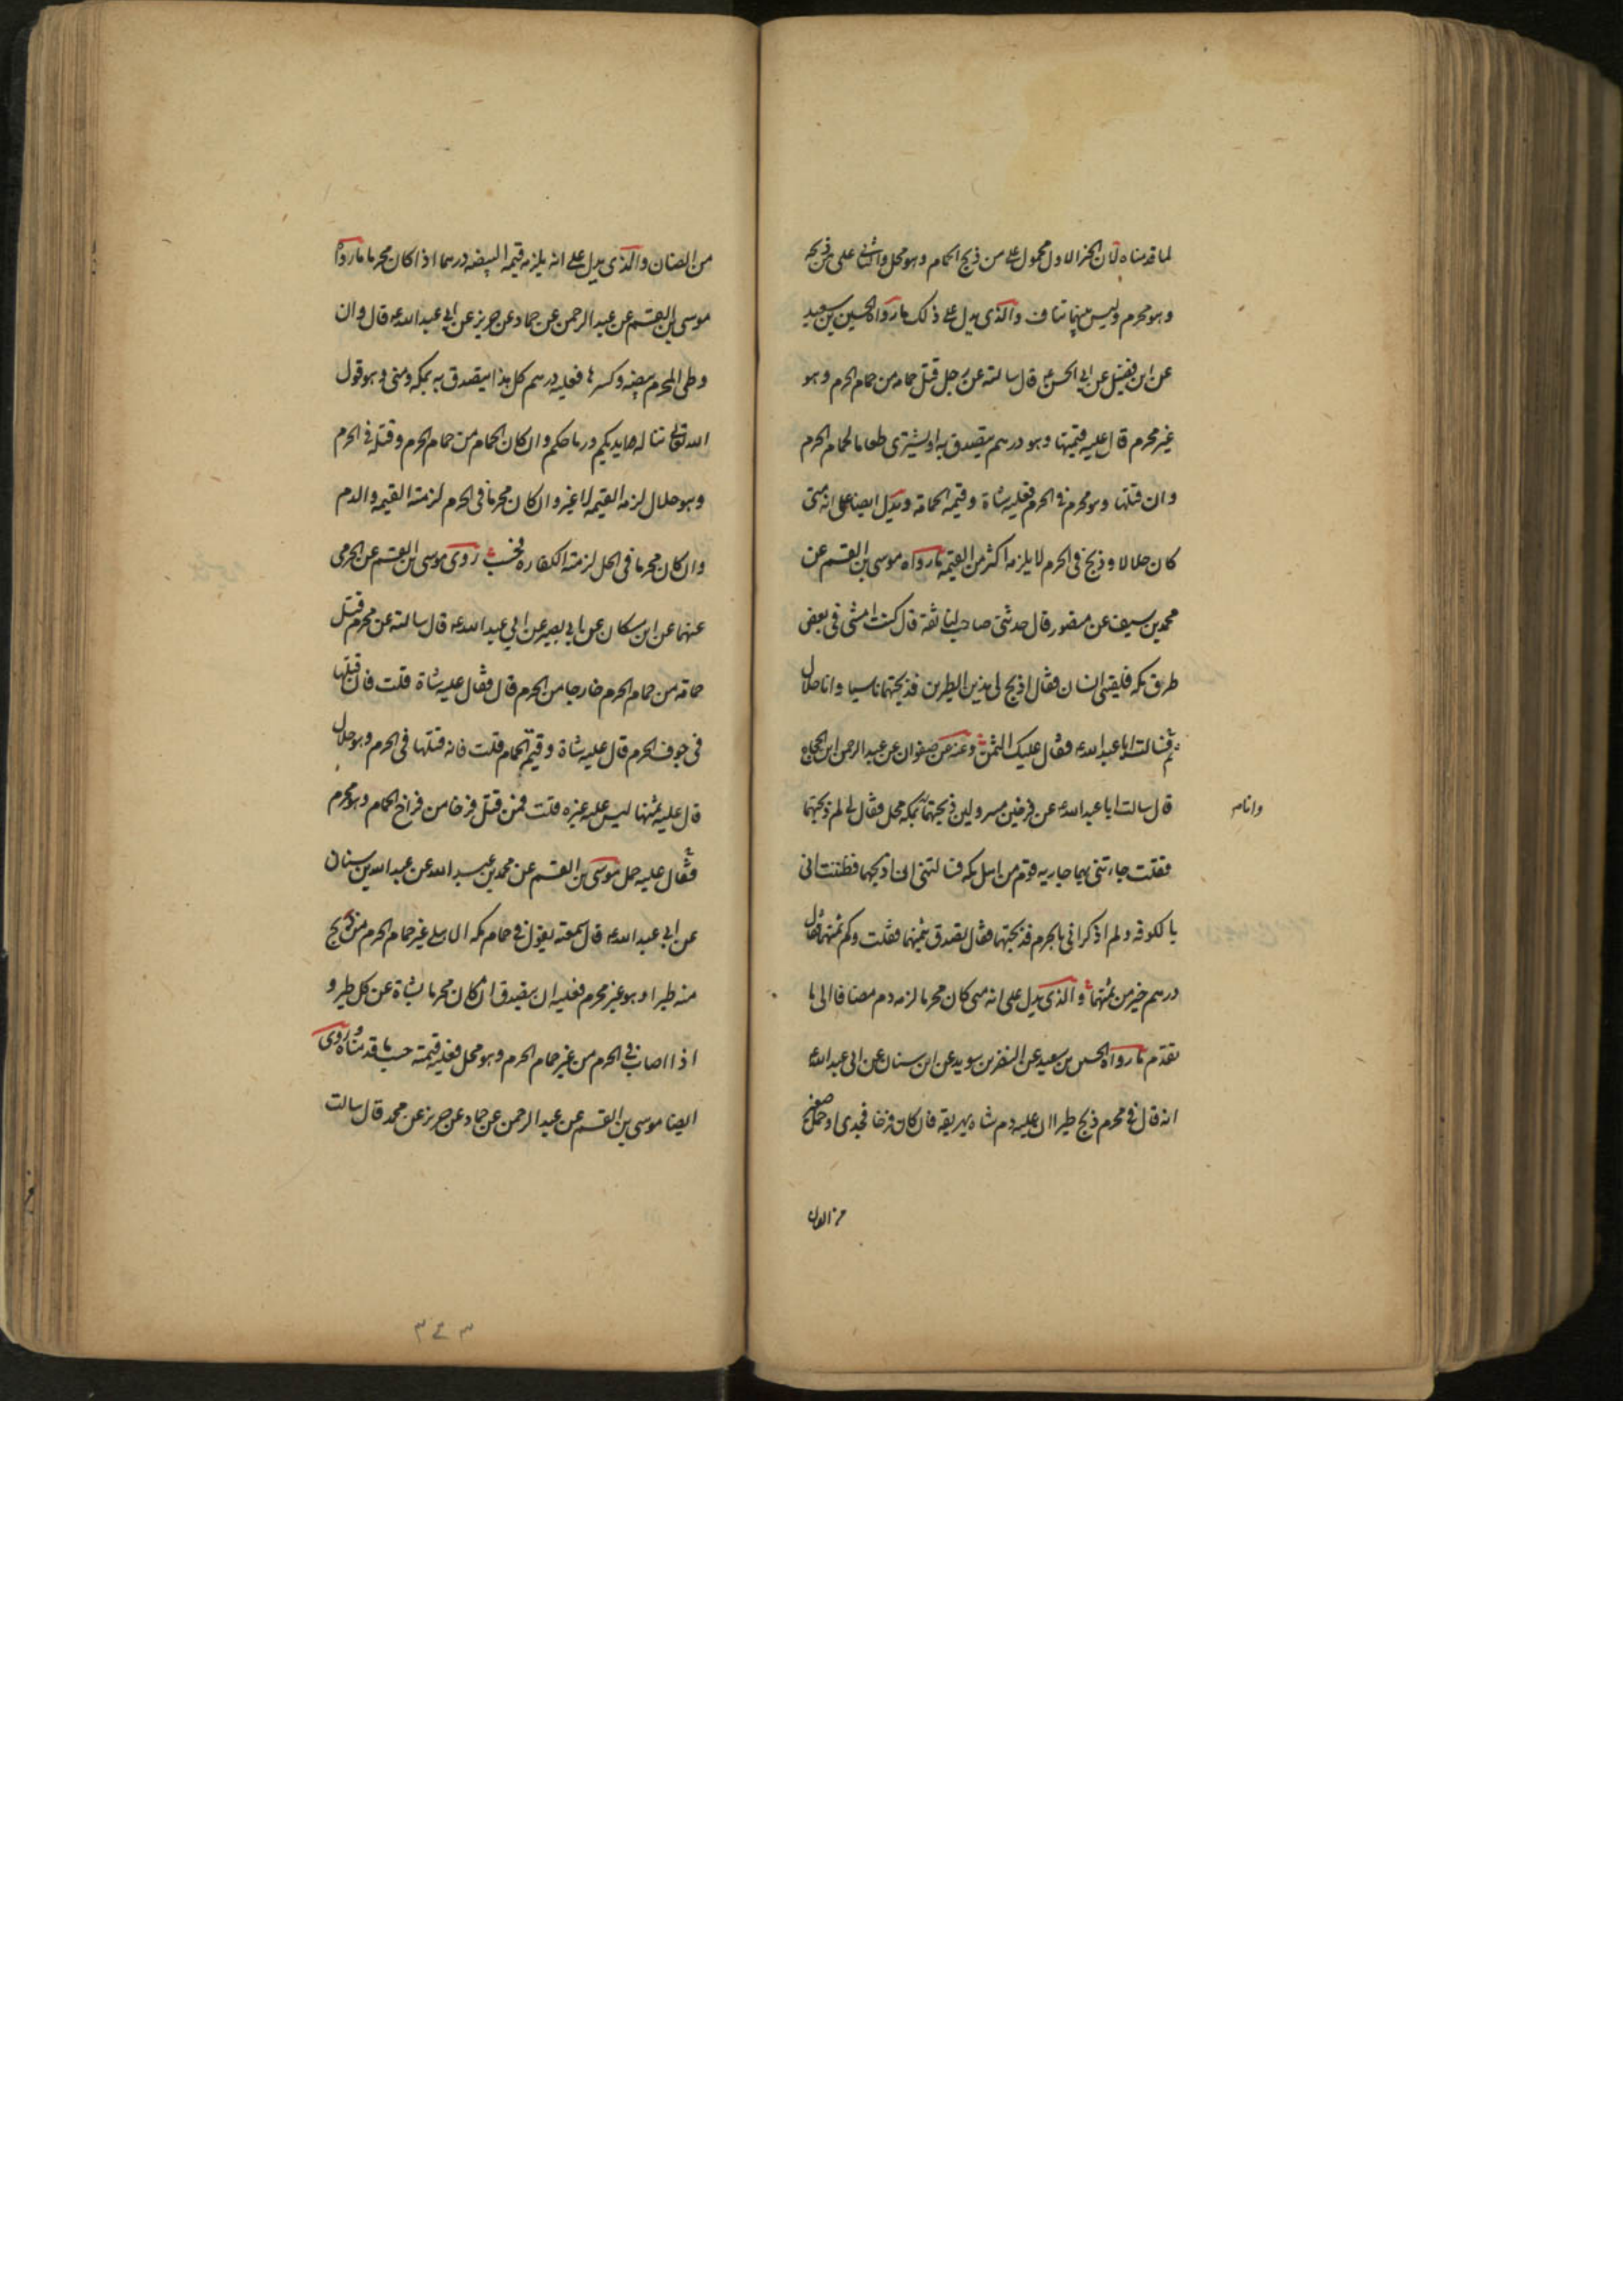 لما قدمناه لان الخبر الاول محمول على من ذبح الحمام وهو محل والثانى على من ذبحه
وهو محرم وليس بينهما تناف والذى يدل على ذلك ما رواه الحسين بن سعيد
عن ابن فضيل عن ابى الحسن ع قال سالته عن رجل قتل حمامه من حمام الحرم وهو
غير محرم قال عليه قيمتها وهو درهم يتصدق به او يشترى طعاما لحمام الحرم
وان قتلها وهو محرم فى الحرم فعليه شاة وقيمه الحمامة ويدل ايضا على انه متى
كان حلالا وذبح فى الحرم لا يلزمه اكثر من القيمه ما رواه موسى بن القسم عن
محمد بن سيف عن منصور قال حدثنى صاحب لنا ثقة قال كنت امشى فى بعض
طرق مكه فلقينى انسان فقال اذبح لى هذين الطيرين فذبحتهما ناسيا وانا حلال
ثم سالت ابا عبد الله ع فقال عليك الثمن وعنه عن صفوان عن عبد الرحمن ابن الحجاج
قال سالت ابا عبد الله ع عن فرخين مسرولين ذبحتهما بمكه محل فقال لى لم ذبحتهما
وانا م
فقلت جاءتنى بهما جاريه قوم من اهل مكه فسالتنى ان اذبحهما فظننت انى
بالكوفه ولم اذكر انى بالحرم فذبحتهما فقال تصدق بثمنهما فقلت وكم ثمنهما فقال
درهم خير من ثمنهما والذى يدل على انه متى كان محرما لزمه دم مضافا الى ما
تقدم ما رواه الحسين بن سعيد عن النضر بن سويد عن ابن سنان عن ابى عبد الله ع
انه قال فى محرم ذبح طيرا ان عليه دم شاه يهريقه فان كان فرخا فجدى او حمل صغير
من الضان
من الضان والذى يدل على انه يلزمه قيمه البيضه درهما اذا كان محرما ما رواه
موسى بن القسم عن عبد الرحمن عن حماد عن حريز عن ابى عبد الله ع قال وان
وطى المحرم بيضه وكسرها فعليه درهم كل هذا يتصدق به بمكه ومنى وهو قول
الله تعالى تناله ايديكم ورماحكم وان كان الحمام من حمام الحرم وقتله فى الحرم
وهو حلال لزمه القيمه لا غير وان كان محرما فى الحرم لزمته القيمه والدم
وان كان محرما فى الحل لزمته الكفاره فحسب روى موسى بن القسم عن الجرمى
عنهما عن ابن مسكان عن ابى بصير عن ابى عبد الله ع قال سالته عن محرم قتل
حمامة من حمام الحرم خارجا من الحرم قال فقال عليه شاة قلت فان قتلها
فى جوف الحرم قال عليه شاة وقيمة الحمام قلت فانه قتلها فى الحرم وهو حلال
قال عليه ثمنها ليس عليه غيره قلت فمن قتل فرخا من فراخ الحمام وهو محرم
فقال عليه حمل موسى بن القسم عن محمد بن عبيد الله عن عبد الله بن سنان
عن ابى عبد الله ع قال سمعته يقول فى حمام مكه الاهلى غير حمام الحرم من ذبح
منه طيرا وهو غير محرم فعليه ان يتصدق ان كان محرما بشاة عن كل طير و
اذا اصاب فى الحرم من غير حمام الحرم وهو محل فعليه قيمته حسب ما قدمناه وروى
ايضا موسى بن القسم عن عبد الرحمن عن حماد عن حريز عن محمد قال سالت